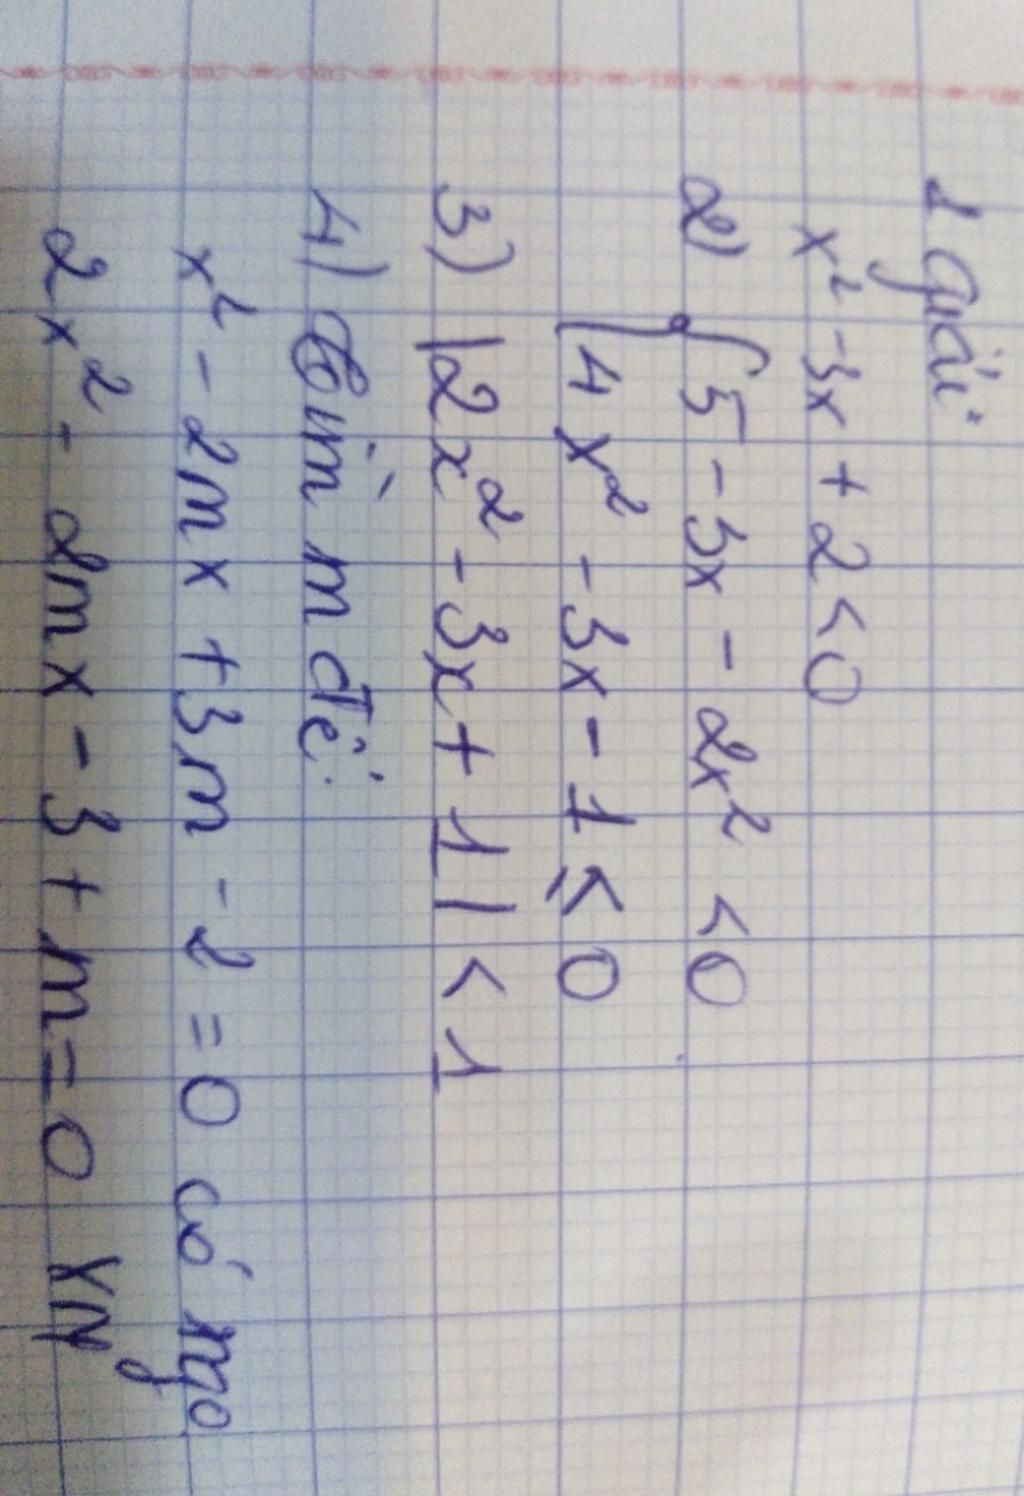 1 Giải:
x² - 3x + 2 < 0
2) { 5 - 3x - 2x² < 0
4x² - 3x - 1 ≤ 0
3) |2x² - 3x + 1| < 1
4) Tìm m để:
x² - 2mx + 3m - 2 = 0 có ngo
2x² - 2mx - 3 + m = 0 VN